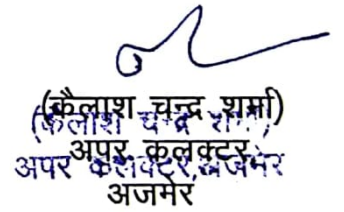 (कैलाश चन्द्र शर्मा)
(कैलाश चन्द्र शर्मा)
अपर कलक्टर
अपर कलक्टर,अजमेर
अजमेर